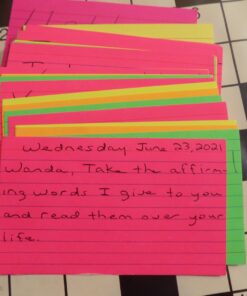 Wednesday June 23, 2021
Wanda, Take the affirm
ing words I give to you
and read them over your
life.